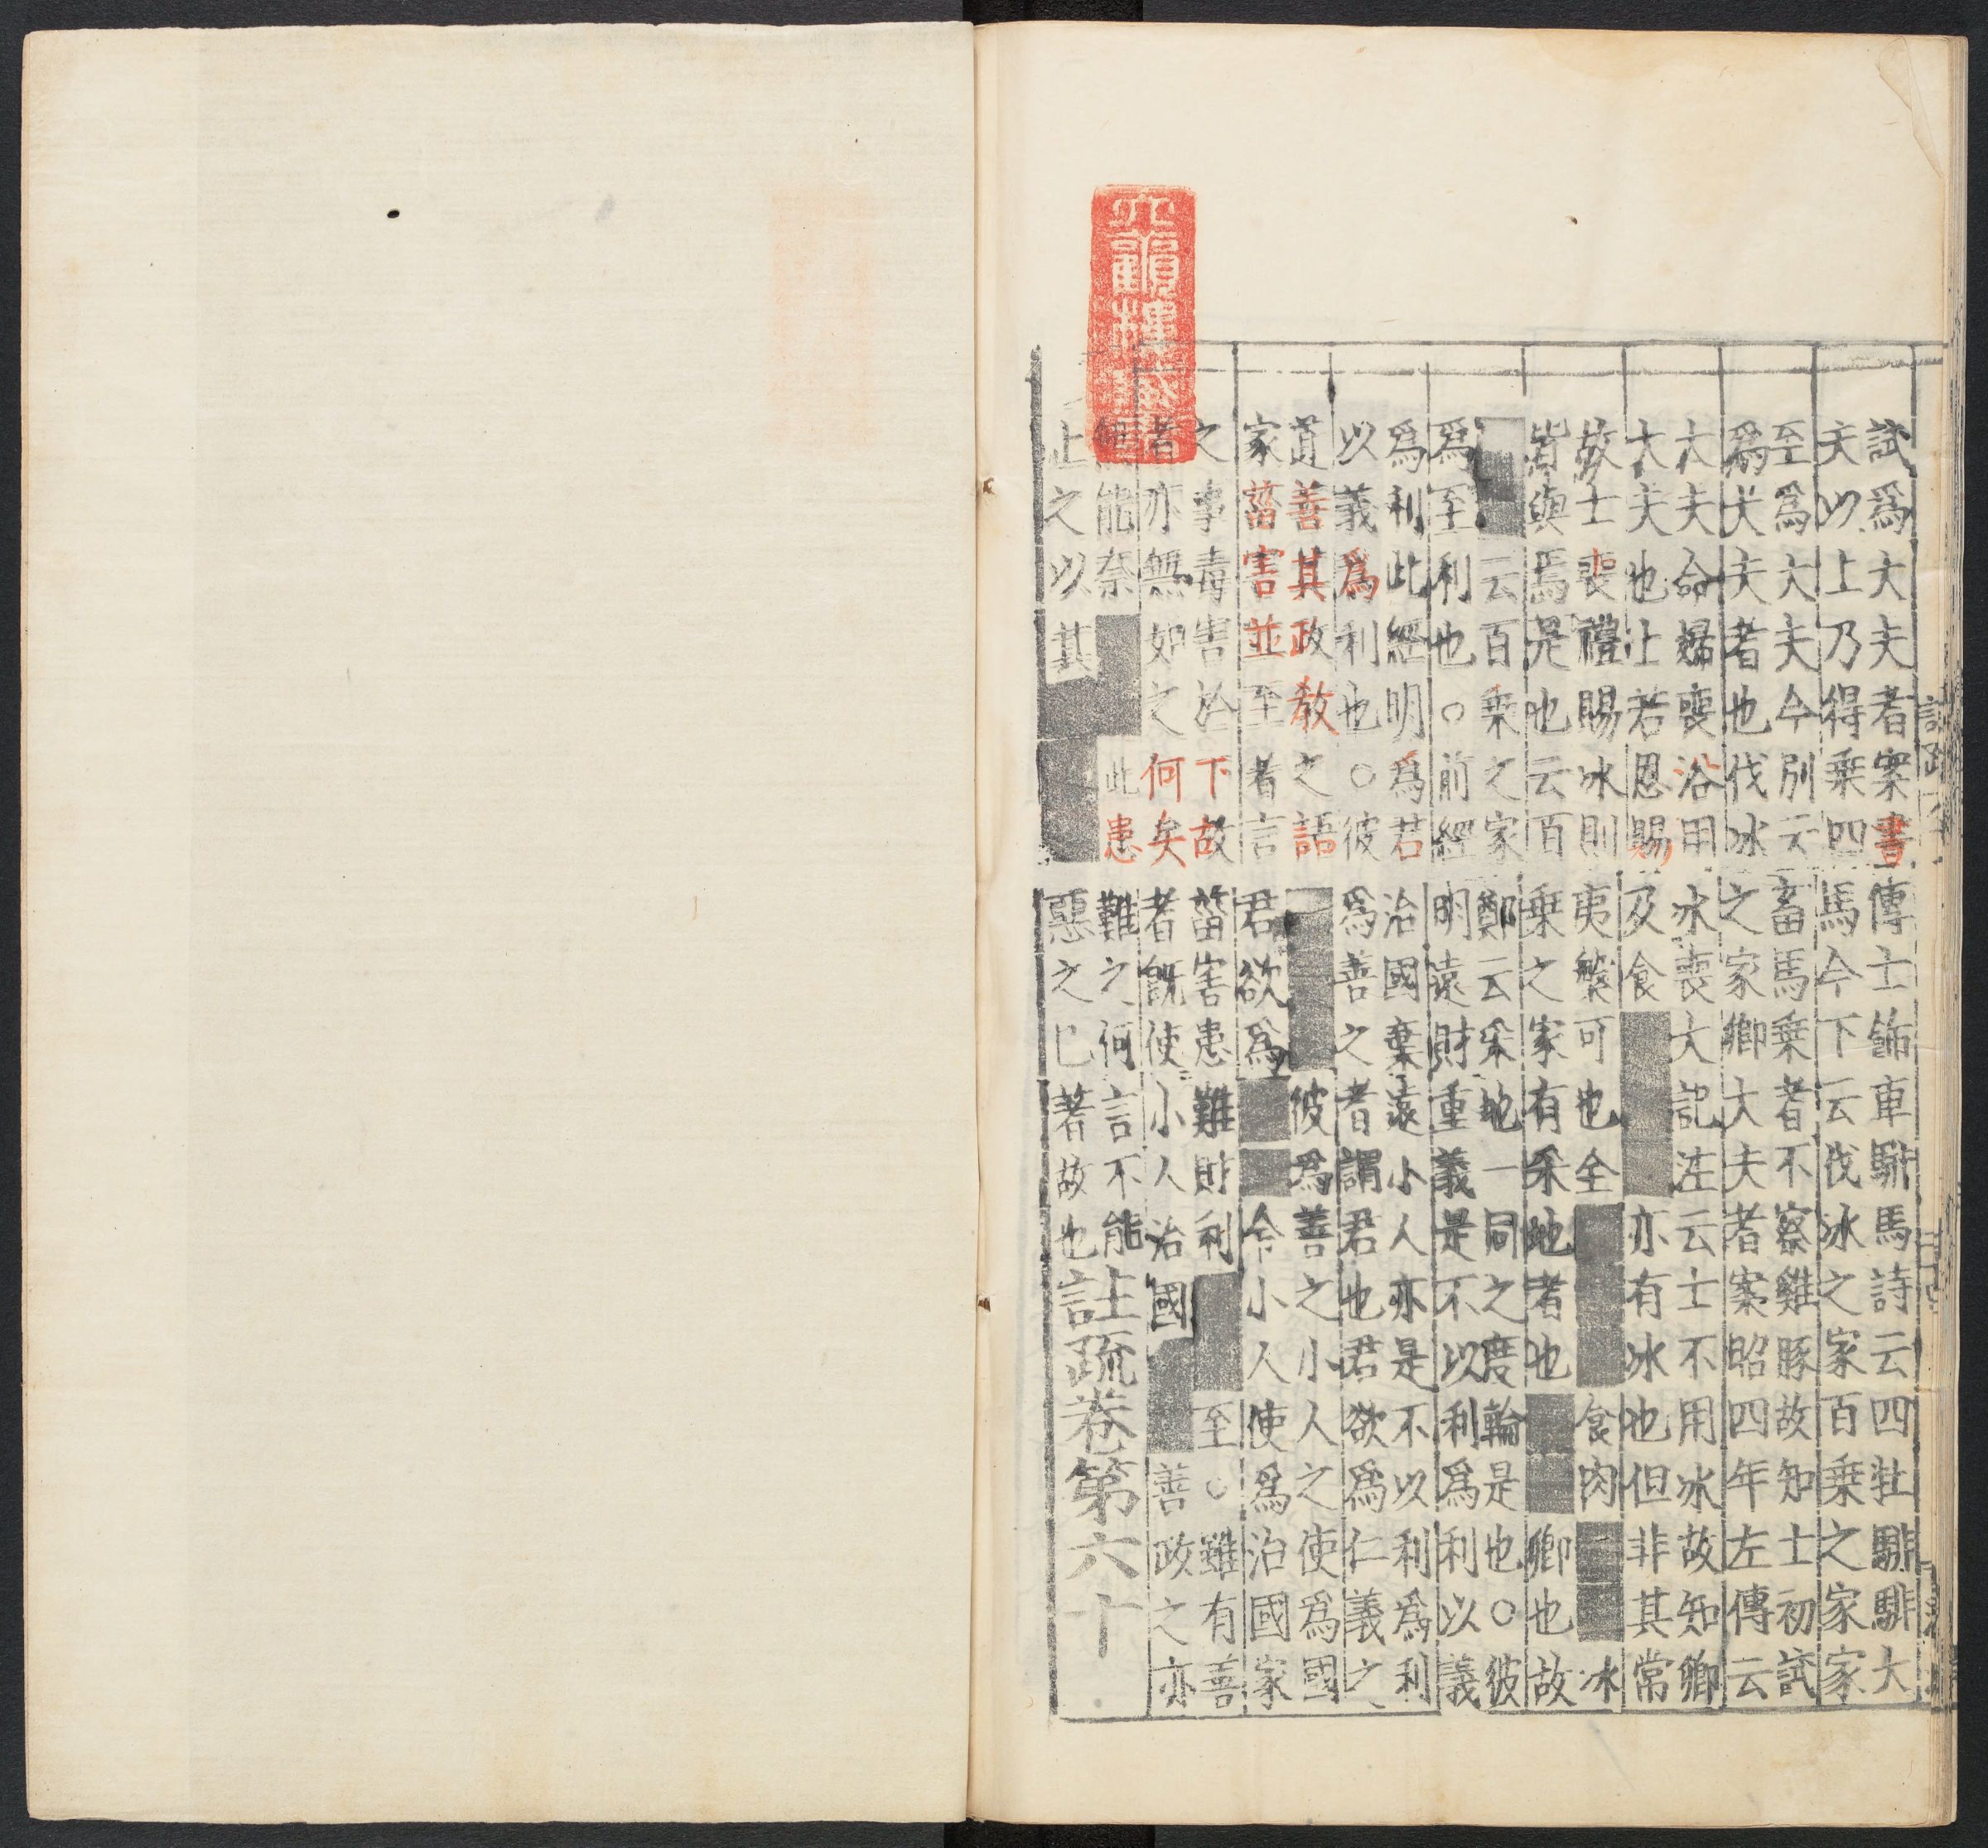 試爲大夫者案書傳士飾車駢馬詩云四牡騑騑大
夫以上乃得乗四馬今下云伐冰之家百乗之家家
至爲大夫今別云畜馬乗者不察雞豚故知士初試
爲大夫者也伐冰之家卿大夫者案昭四年左傳云
大夫命婦喪浴用冰喪大記注云士不用冰故知卿
大夫也士若恩賜及食亦有冰也但非其常
故士喪禮賜冰則夷槃可也全食肉冰
皆與焉是也云百乗之家有采地者也卿也故
云百乗之家鄭云采地一同之度輪是也○彼
爲至利也○前經明遠財重義是不以利爲利以義
爲利此經明爲君治國棄遠小人亦是不以利爲利
以義爲利也○彼爲善之者謂君也君欲爲仁義之
道善其政教之語彼爲善之小人之使爲國
家菑害並至者言君欲爲令小人使爲治國家
之事毒害於下故菑害患難財利至○雖有善
者亦無如之何矣者旣使小人治國善政之亦
何能奈此患難之何言不能
止之以其惡之已著故也
註疏卷第六十